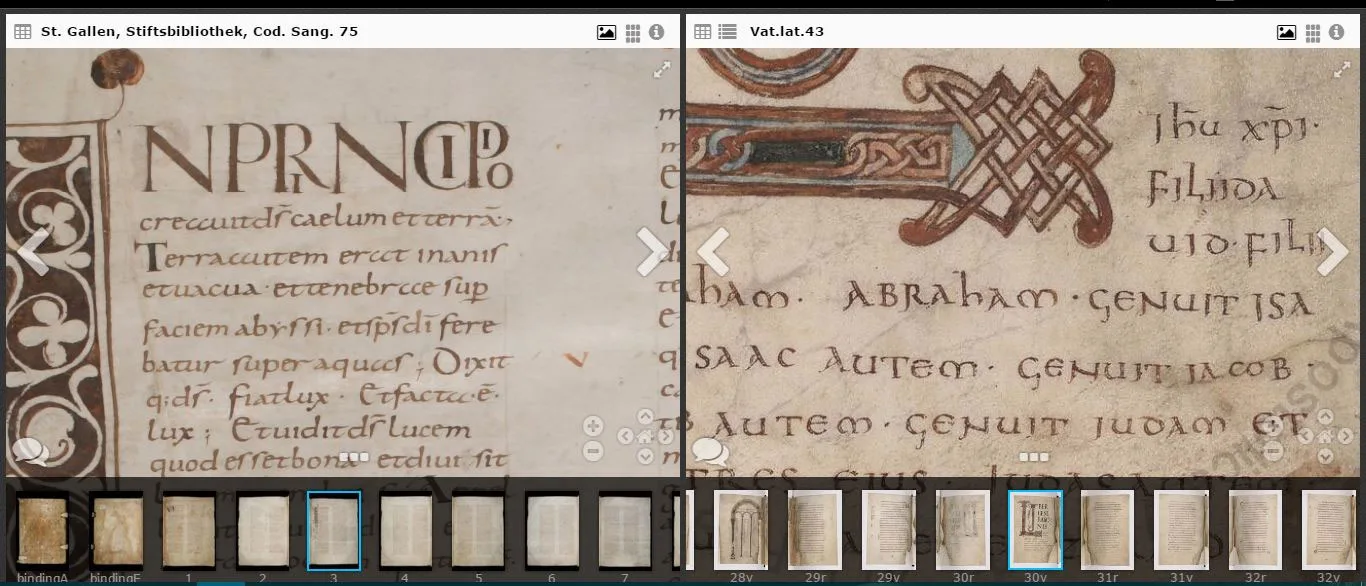 St. Gallen, Stiftsbibliothek, Cod. Sang. 75
NPRINCIPIO
creauitds̄ caelum etterrā·,
Terraautem erat inanis
etuacua· ettenebrae sup̄
faciem abyssi· etsp̄sdī fere
batur super aquas ; Dixit
q;ds̄· fiatlux · Etfactaē·
lux ; Etuiditds̄ lucem
quod essetbona etdiui sit
bindingA bindingE 1 2 3 4 5 6 7
Vat.lat.43
Ihū xp̄i·
FILIIDA
UID·FILII
ham· ABRAham·GENUIT ISA
SAAC AUTEM· GENUIT IACOB·
B AUTEM· GENUIT IUDAM ET
TRES EIUS· IUDAS AUTEM
28v 29r 29v 30r 30v 31r 31v 32r 32v